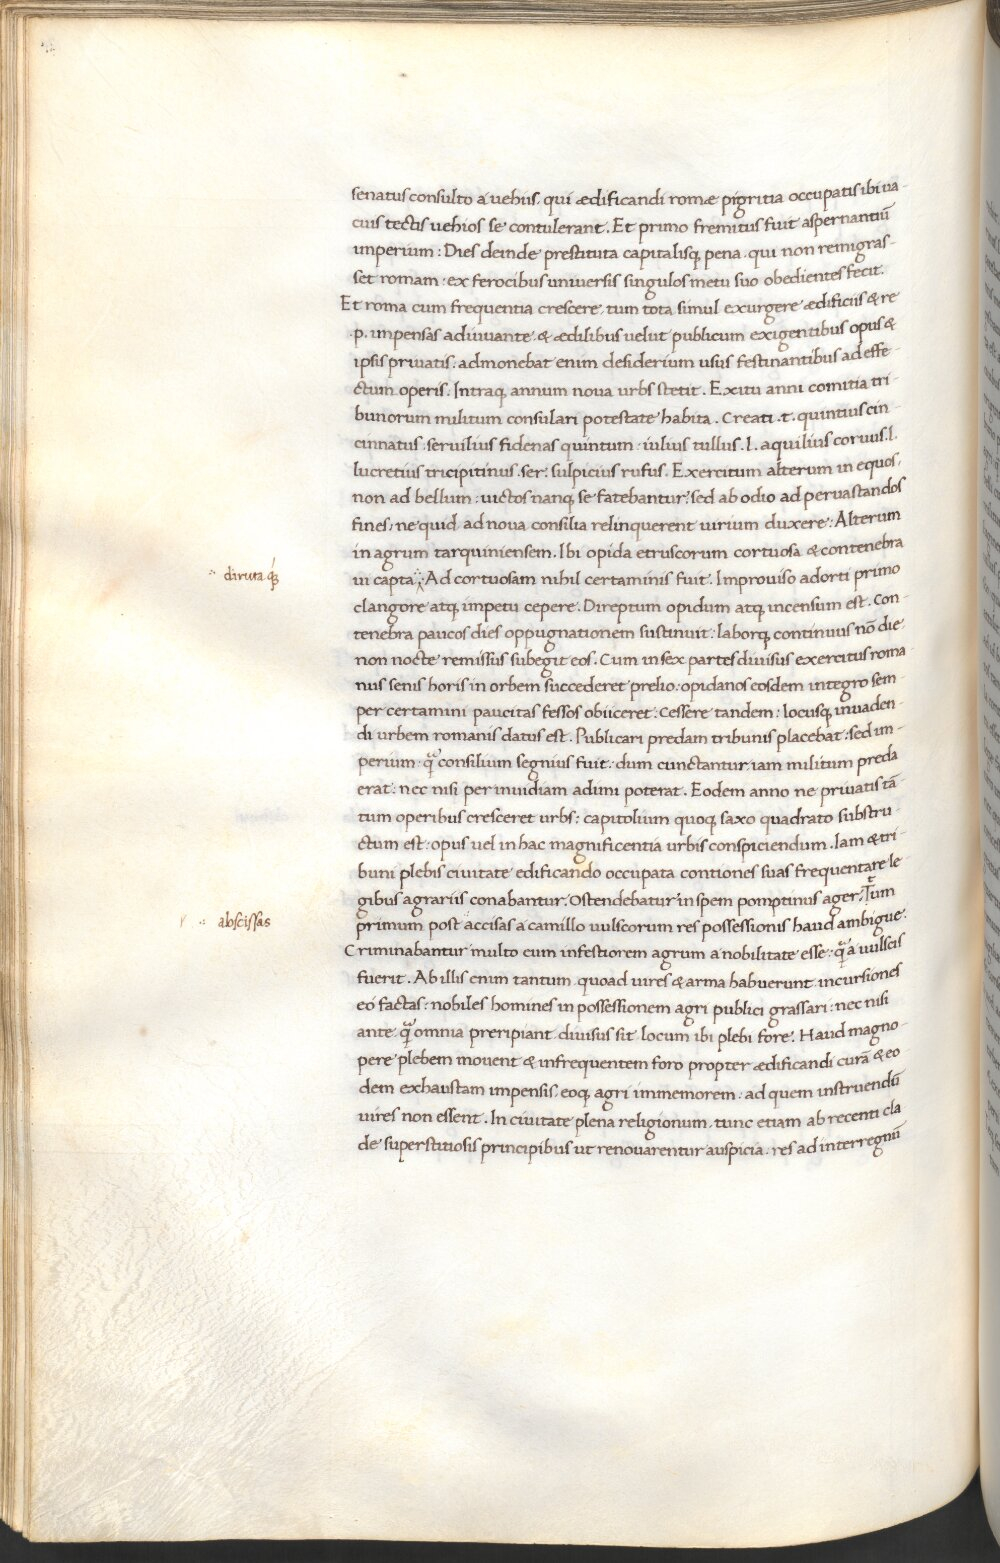 senatus consulto a uehiis. qui ædificandi romæ pigritia occupatis ibi ua-
cuis tectis uehios se contulerant. Et primo fremitus fuit aspernantiū
imperium: Dies deinde prestituta capitalisq; pena. qui non remigras-
set romam: ex ferocibus uniuersis singulos metu suo obedientes fecit.
Et roma cum frequentia crescere. tum tota simul exurgere ædificiis & re
.p. impensas adiuuante. & ædilibus uelut publicum exigentibus opus &
ipsis priuatis: admonebat enim desiderium usus festinantibus ad effe-
ctum operis. Intraq; annum noua urbs stetit. Exitu anni comitia tri-
bunorum militum consulari potestate habita. Creati .t. quintius cin-
cinnatus. seruilius fidenas quintum: iulius tullus. l. aquilius coruus. l.
lucretius tricipitinus. ser. sulpicius rufus. Exercitum alterum in equos,
non ad bellum: uictos nanq; se fatebantur: sed ab odio ad peruastandos
fines: ne quid ad noua consilia relinquerent uirium duxere: Alterum
in agrum tarquiniensem. Ibi opida etruscorum cortuosa & contenebra
diruta q;
ui capta. Ad cortuosam nihil certaminis fuit. Improuiso adorti primo
clangore atq; impetu cepere. Direptum opidum atq; incensum est. Con-
tenebra paucos dies oppugnationem sustinuit: laborq; continuus nō die
non nocte remissus subegit eos. Cum in sex partes diuisus exercitus roma-
nus senis horis in orbem succederet prelio: opidanos eosdem integro sem-
per certamini paucitas fessos obiiceret. Cessere tandem: locusq; inuaden-
di urbem romanis datus est. Publicari predam tribunis placebat: sed im-
perium q̄ consilium segnius fuit. dum cunctantur iam militum preda
erat: nec nisi per inuidiam adimi poterat. Eodem anno ne priuatis tā-
tum operibus cresceret urbs: capitolium quoq; saxo quadrato substru-
ctum est: opus uel in hac magnificentia urbis conspiciendum. Iam & tri-
buni plebis ciuitate edificando occupata contiones suas frequentare le-
gibus agrariis conabantur. Ostendebatur in spem pomptinus ager. Tum
abscissas
primum post accisas a camillo uulscorum res possessionis haud ambigue.
Criminabantur multo eum infestiorem agrum a nobilitate esse: q̄ a uulscis
fuerit. Ab illis enim tantum quoad uires & arma habuerunt incursiones
eo factas: nobiles homines in possessionem agri publici grassari: nec nisi
ante q̄ omnia preripiant diuisus sit locum ibi plebi fore. Haud magno-
pere plebem mouent & infrequentem foro propter ædificandi curā & eo
dem exhaustam impensis. eoq; agri immemorem. ad quem instruendū
uires non essent. In ciuitate plena religionum. tunc etiam ab recenti cla
de superstitiosis principibus ut renouarentur auspicia. res ad interregnū